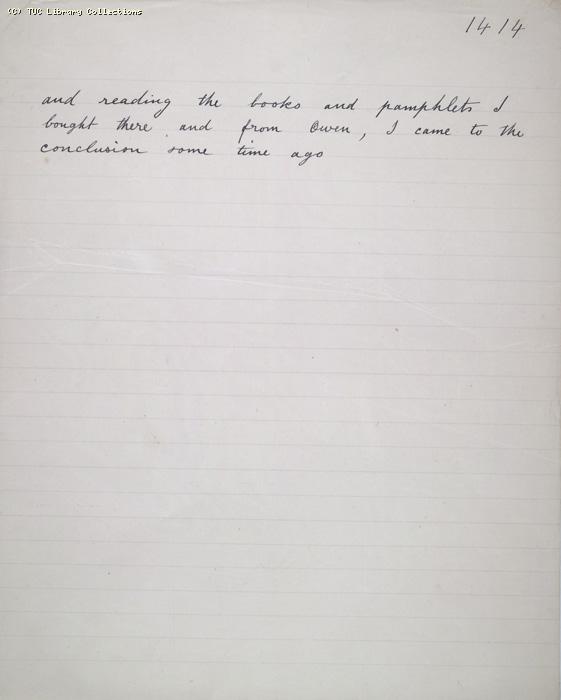 (C) TUC Library Collections
1414
and reading the books and pamphlets I
bought there and from Owen, I came to the
conclusion some time ago